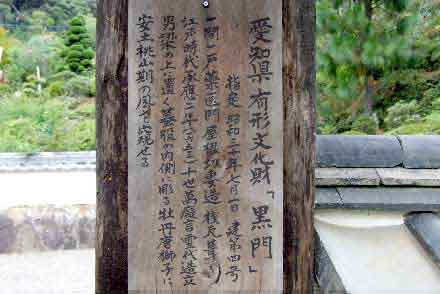 愛知県 有形文化財「黒門」
指定 昭和三十年七月一日 建第四号
一間一戸薬医門 屋根切妻造 桟瓦葺き
江戸時代 承応二年(一六五三) 十世萬 言 代造立
男梁の上に置く蟇股の内側に彫る牡丹唐獅子に
安土桃山期の風を 現せる